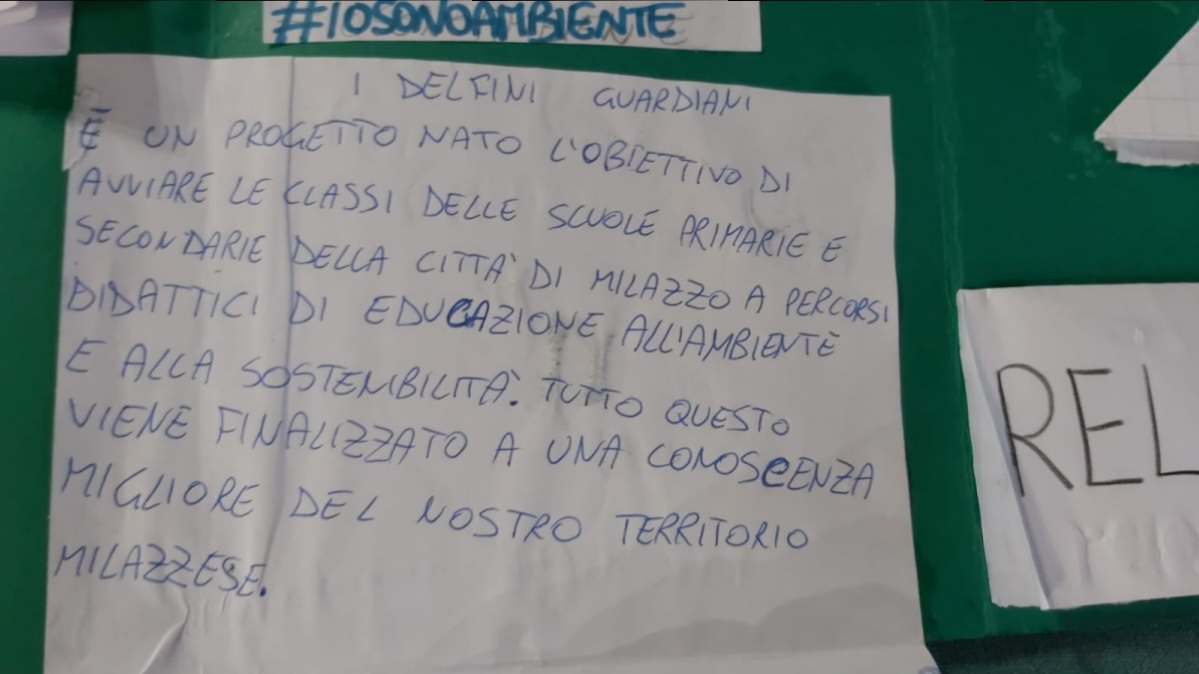 #IOSONOAMBIENTE
I DELFINI GUARDIANI
È UN PROGETTO NATO L'OBIETTIVO DI
AVVIARE LE CLASSI DELLE SCUOLE PRIMARIE E
SECONDARIE DELLA CITTA' DI MILAZZO A PERCORSI
DIDATTICI DI EDUCAZIONE ALL'AMBIENTE
E ALLA SOSTENIBILITA'. TUTTO QUESTO
VIENE FINALIZZATO A UNA CONOSCENZA
MIGLIORE DEL NOSTRO TERRITORIO
MILAZZESE.
REL